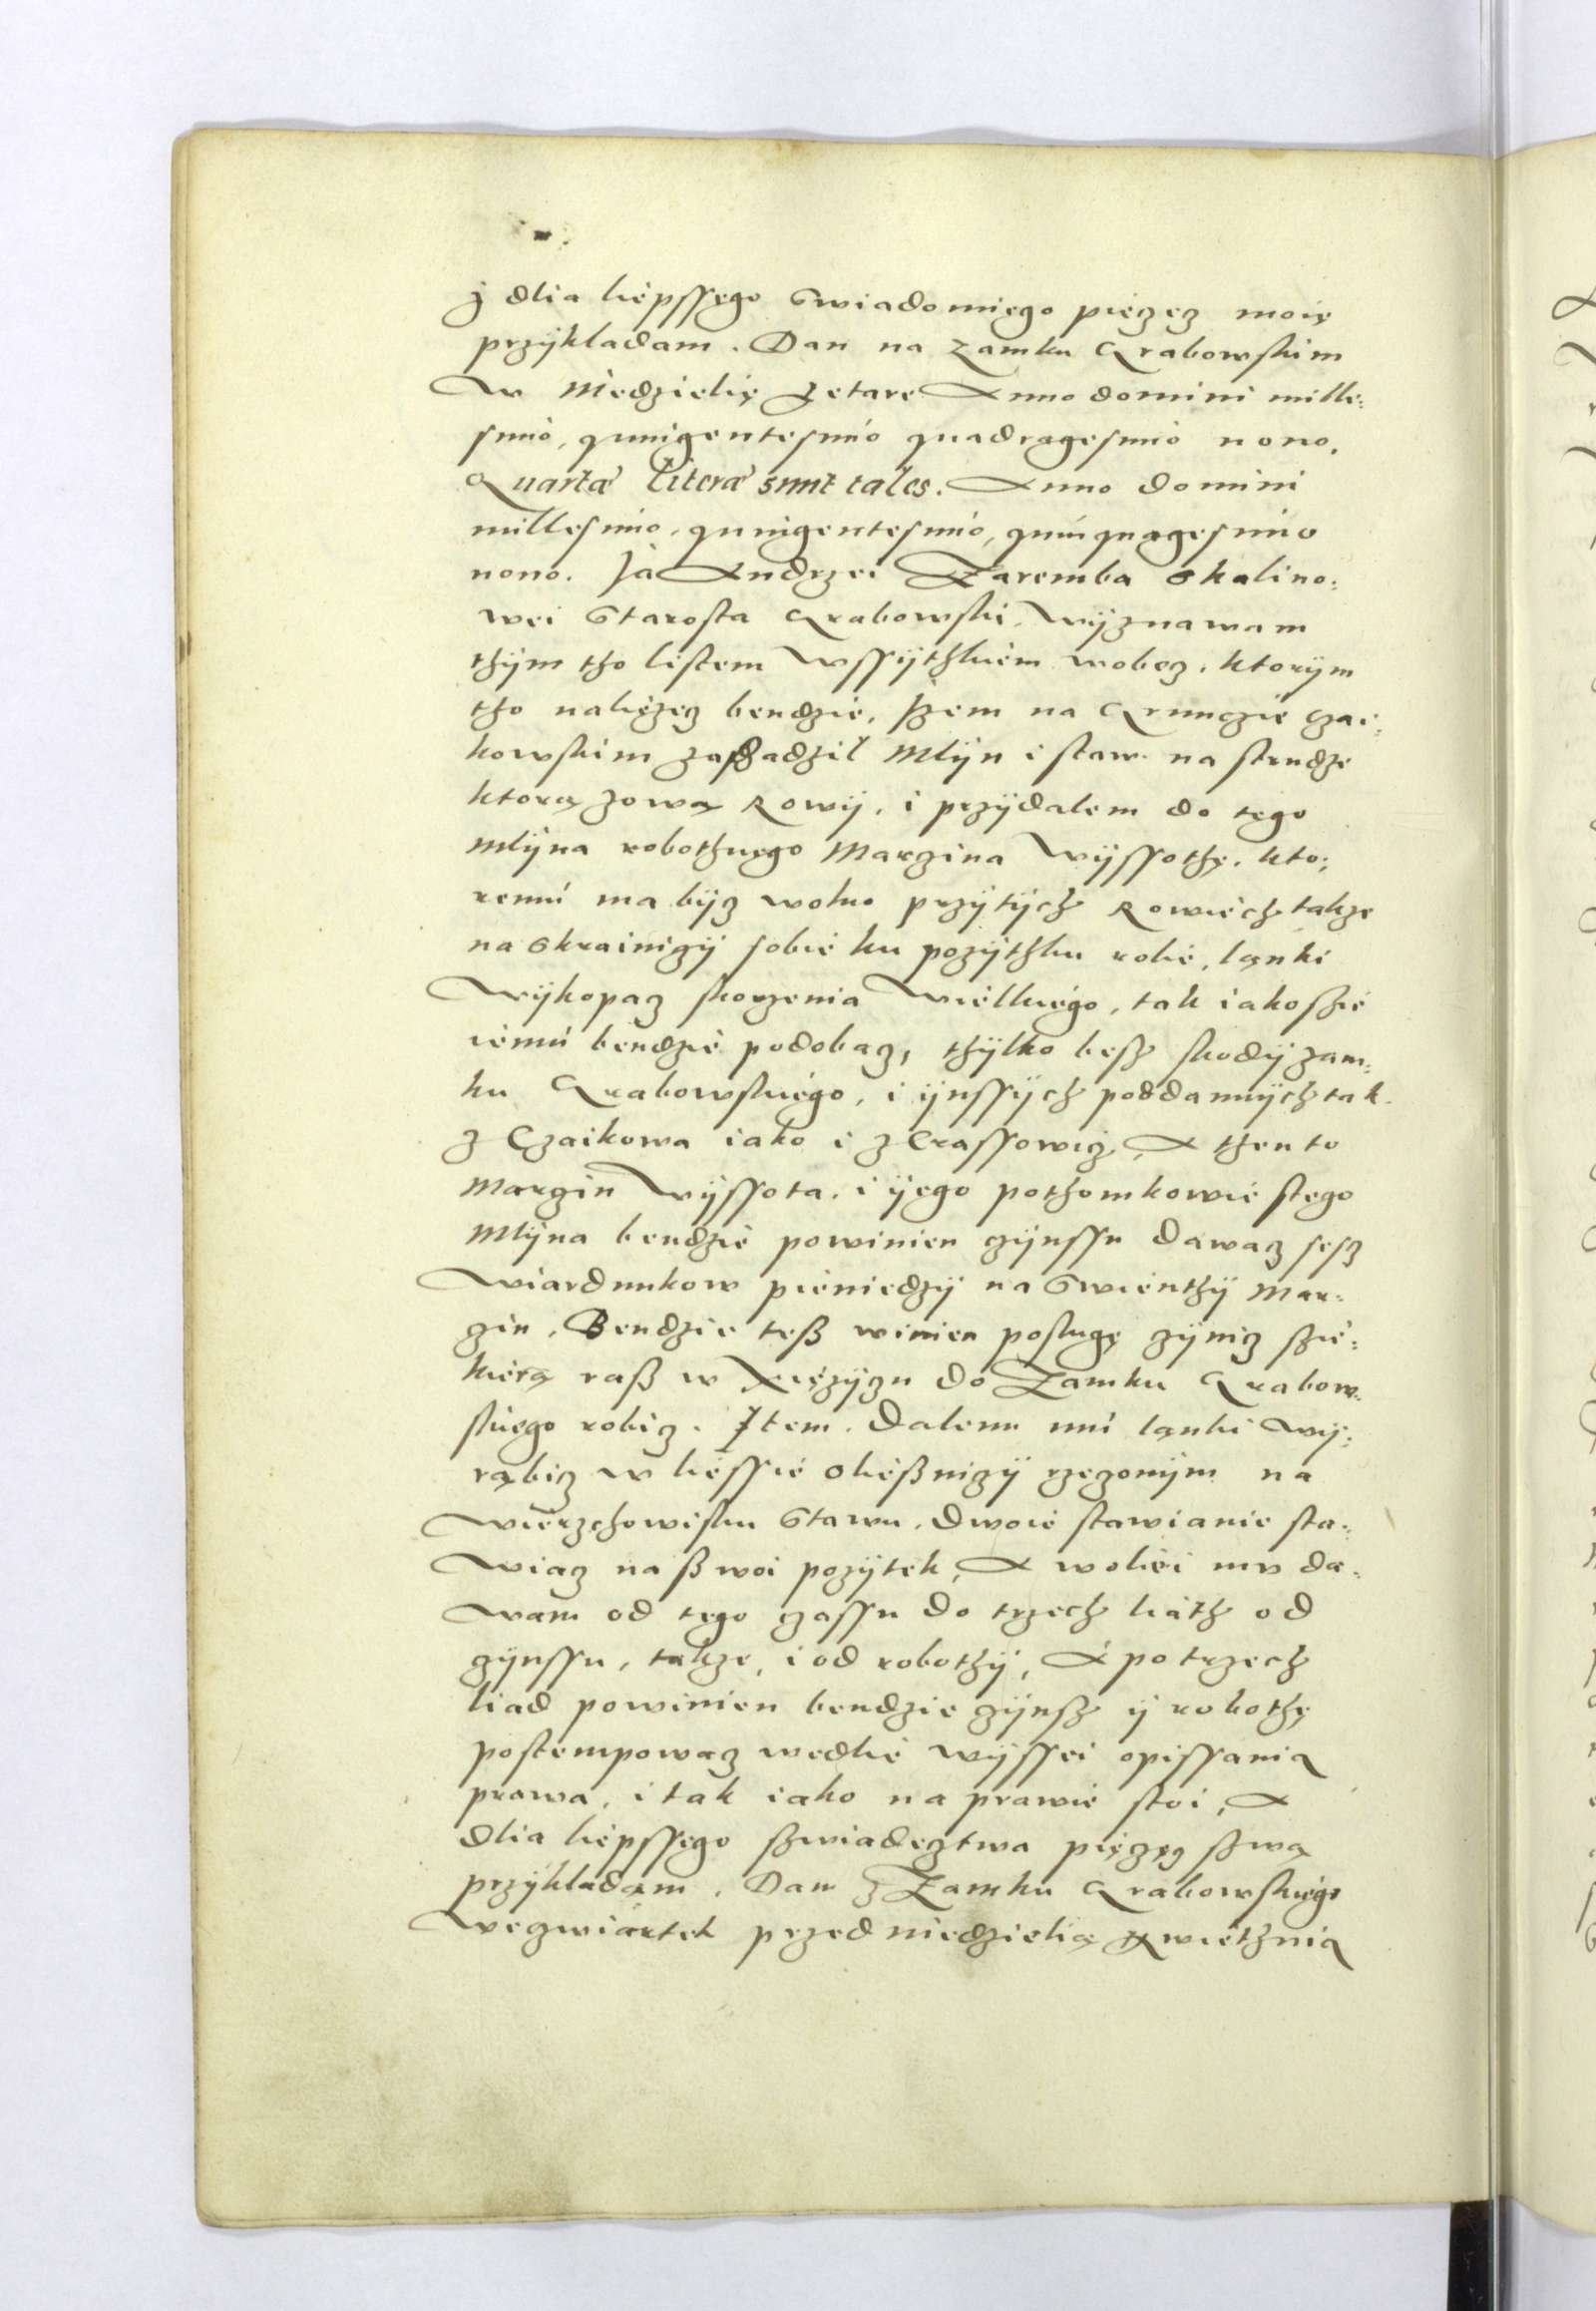 j dlia liepssego Swiadomięgo pięzęz moię
przÿkladam. Dan na zamku Grabowskim
W Niedzielię Letare Anno domini mille:
simo, quingentesimo quadragesimo nono.
Quartæ literæ sunt tales. Anno domini
millesimo, quingentesimo, quinquagesimo
nono. Ja Andrzei Zaremba Skalino:
wei Starosta Grabowski, Wÿznawam
thÿm tho listem Wssÿthkiem wobęz. ktorÿm
tho naliężęz bendzie, Jżem na Grunczie Czai:
kowskim zasadzil Mlÿn i staw na strudze
ktorą zową Rowÿ, i przÿdalem do tęgo
mlÿna robothnęgo Marzina Wÿssothę. kto:
remu ma bÿz wolno przÿtÿch Rowiech takze
na Skrainizÿ sobie ku pozÿthku rolie, ląnki
Wÿkopaz skorzenia Wielkiego, tak iakoszie
iemu bendzie podobaz, thÿlko besz skodÿ zam:
ku Grabowskiego, i ÿnssÿch poddannÿch tak
z Czaikowa iako i z Crassowiz, A then to
Marzin Wÿssota. i ÿego pothomkowie stego
Mlÿna bendzie powinien zÿnssu dawaz sesz
Wiardunkow pieniedzÿ na Swienthÿ Mar:
zin. Bendzie teß winien poslugę zÿniz szie:
kierą raß w Xięzÿzu do Zamku Grabow:
skiego robiz. Item. Dalem mu ląnki wÿ:
rąbiz w liessie Oließnizÿ rzęzonÿm na
Wierzchowisku Stawu. Dwoie stawianie sta:
wiaz na ßwoi pozÿtek, A woliei mu da:
wam od tęgo czassu do trzech liath od
zÿnssu, takze, i od robothÿ, A po trzech
liad powinien bendzie zÿnsz ÿ robothę
postempowaz wedlie wÿssei opissania
prawa, i tak iako na prawie stoi, A
dlia liepssego szwiadeztwa pięzęz szwą
przÿkladam. Dan z Zamku Grabowskiego
Wezwiartek przed niedzielią Kwiethnią